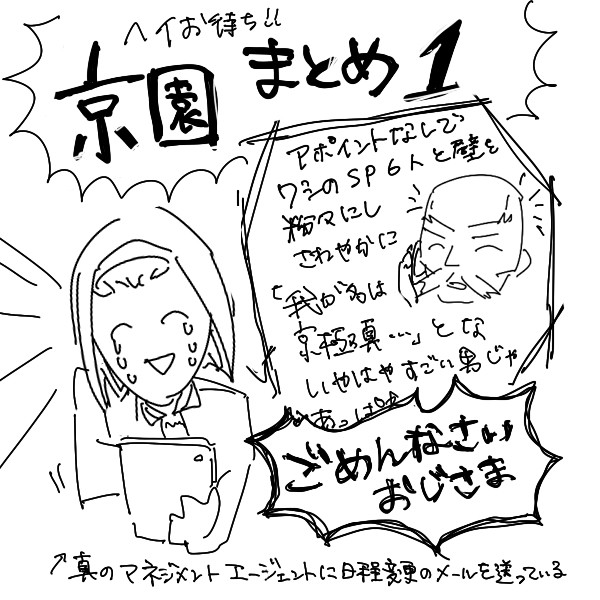 ヘイお待ち!!
京園まとめ1
アポイントなしで
ワシのSP6人と壁を
粉々にし
さわやかに
「我が名は
京極真…」とな
いやはやすごい男じゃ
あっぱれ
ごめんなさい
おじさま
↗真のマネジメントエージェントに日程変更のメールを送っている